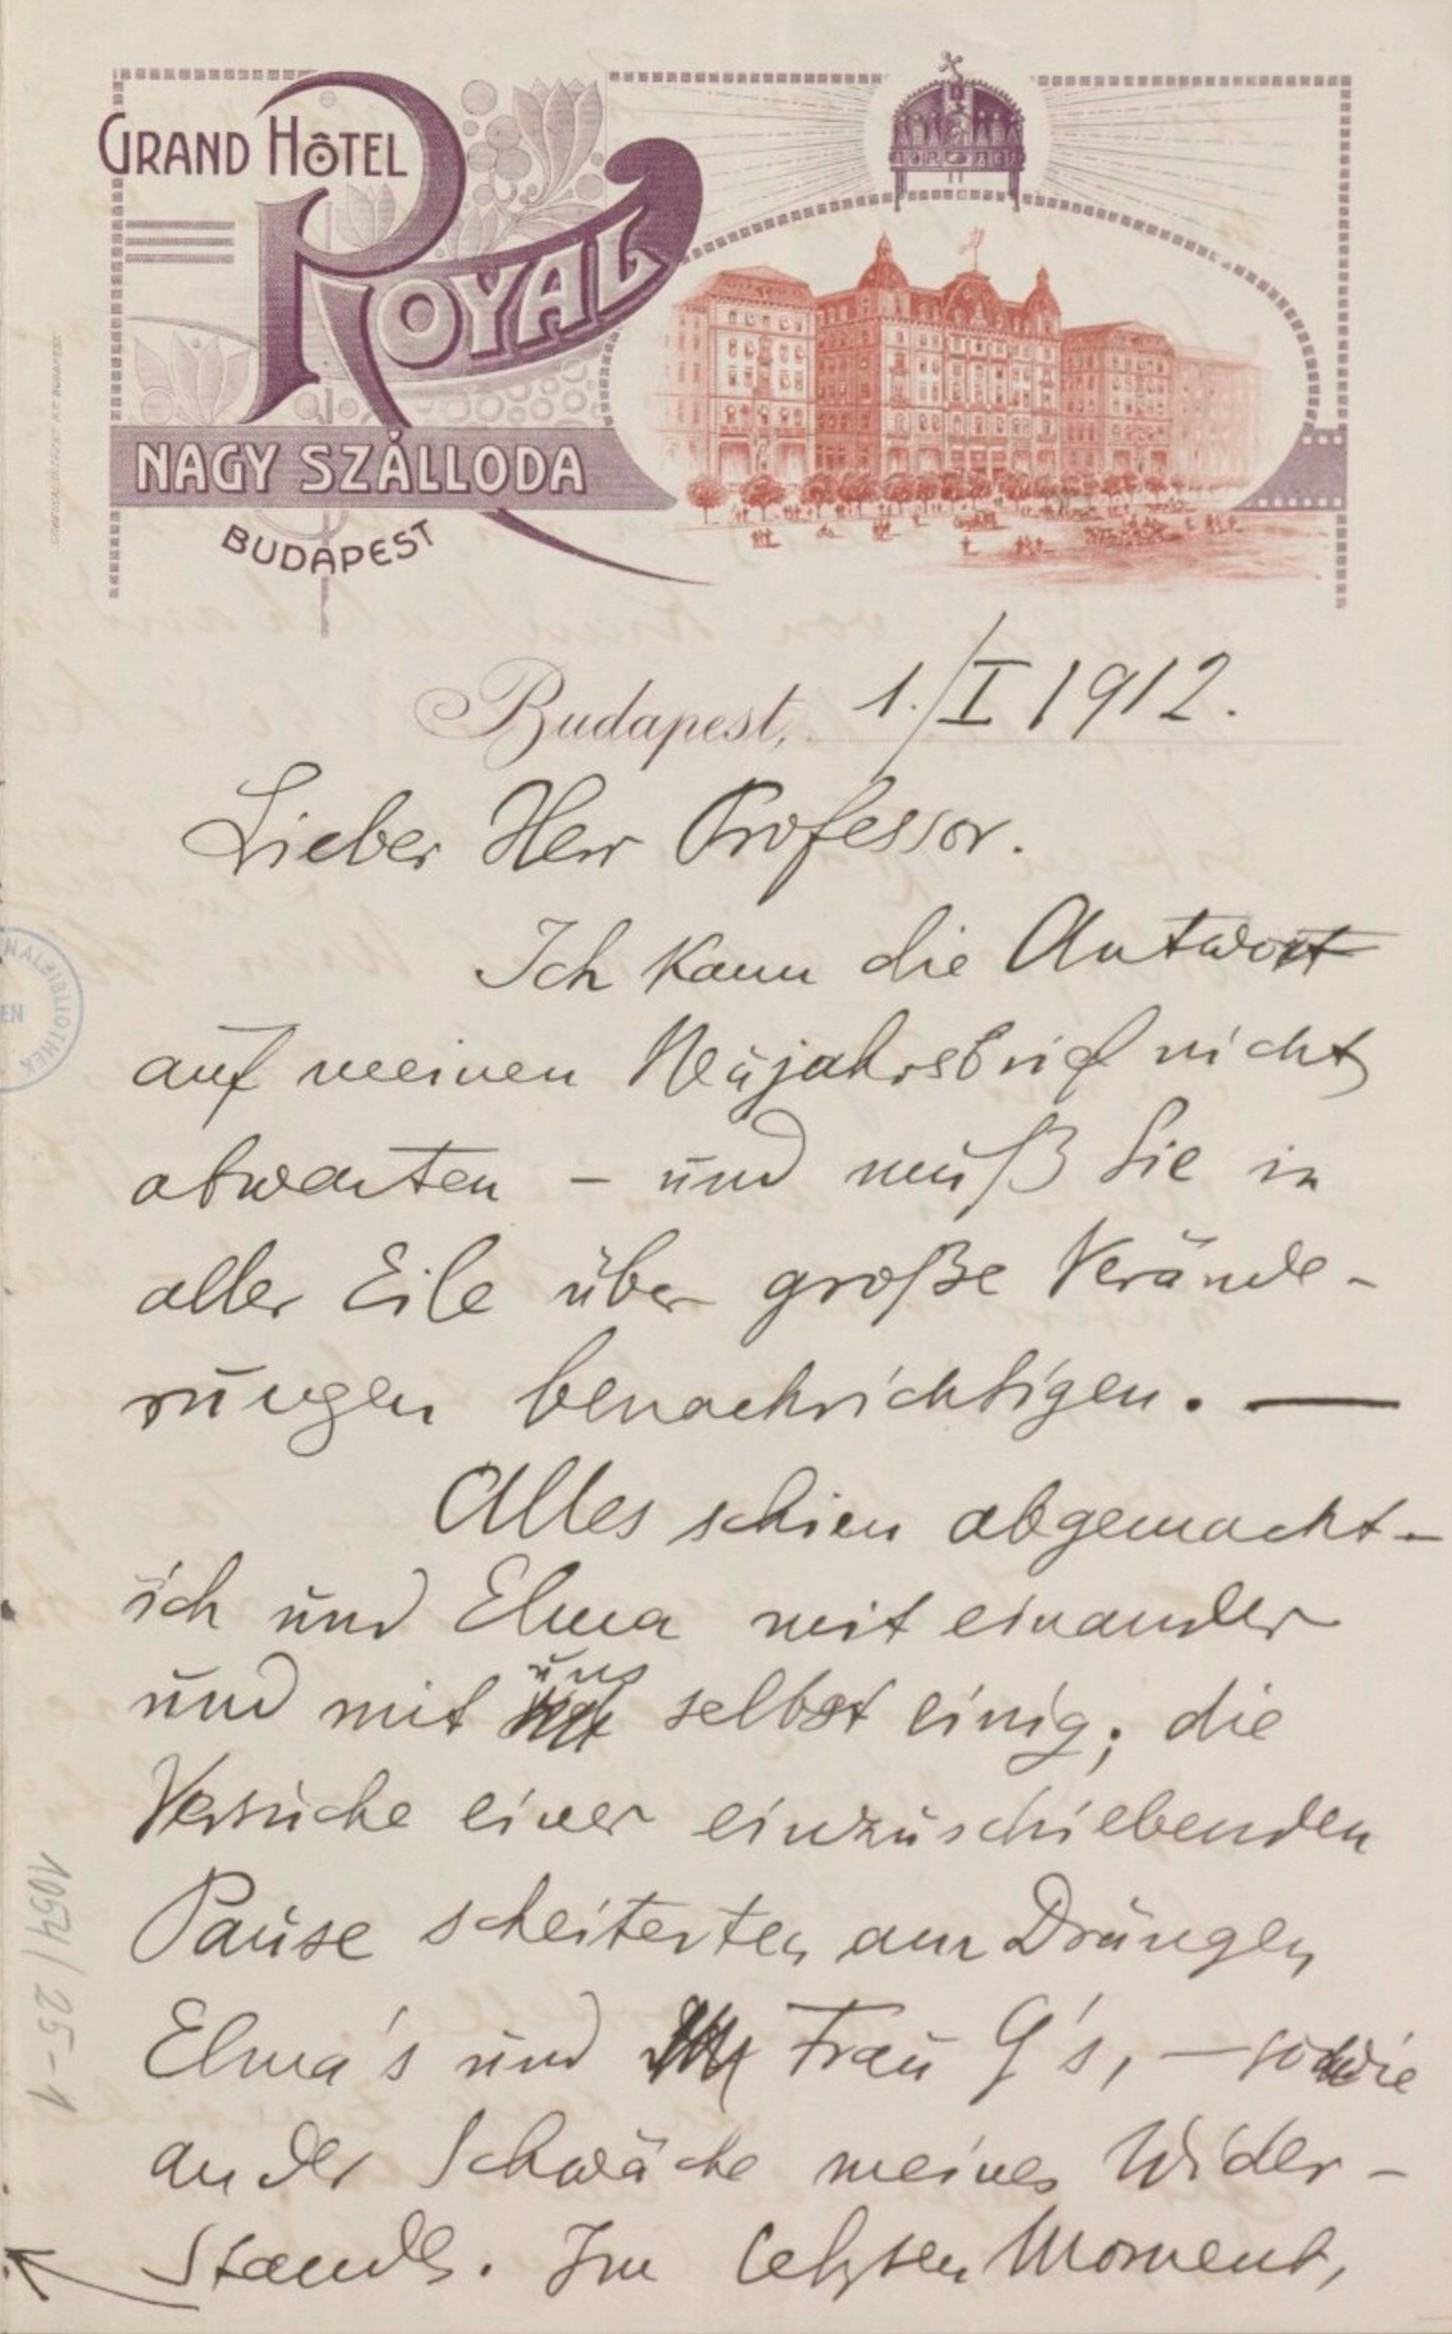 GRAND HÔTEL
ROYAL
NAGY SZÁLLODA
BUDAPEST
Budapest, 1./I 1912.
Lieber Herr Professor.
Ich kann die Antwort
auf meinen Neujahrsbrief nicht
abwarten – und muß Sie in
aller Eile über große Verände-
rungen benachrichtigen. —
Alles schien abgemacht –
ich und Elma mit einander
und mit uns selbst einig; die
Versuche einer einzuschiebenden
Pause scheiterten am Drängen
Elma's und Frau G's, – sowie
an der Schwäche meines Wider-
stands. Im letzten Moment,
NALBIBLIOTHEK
EN
1054/25-1